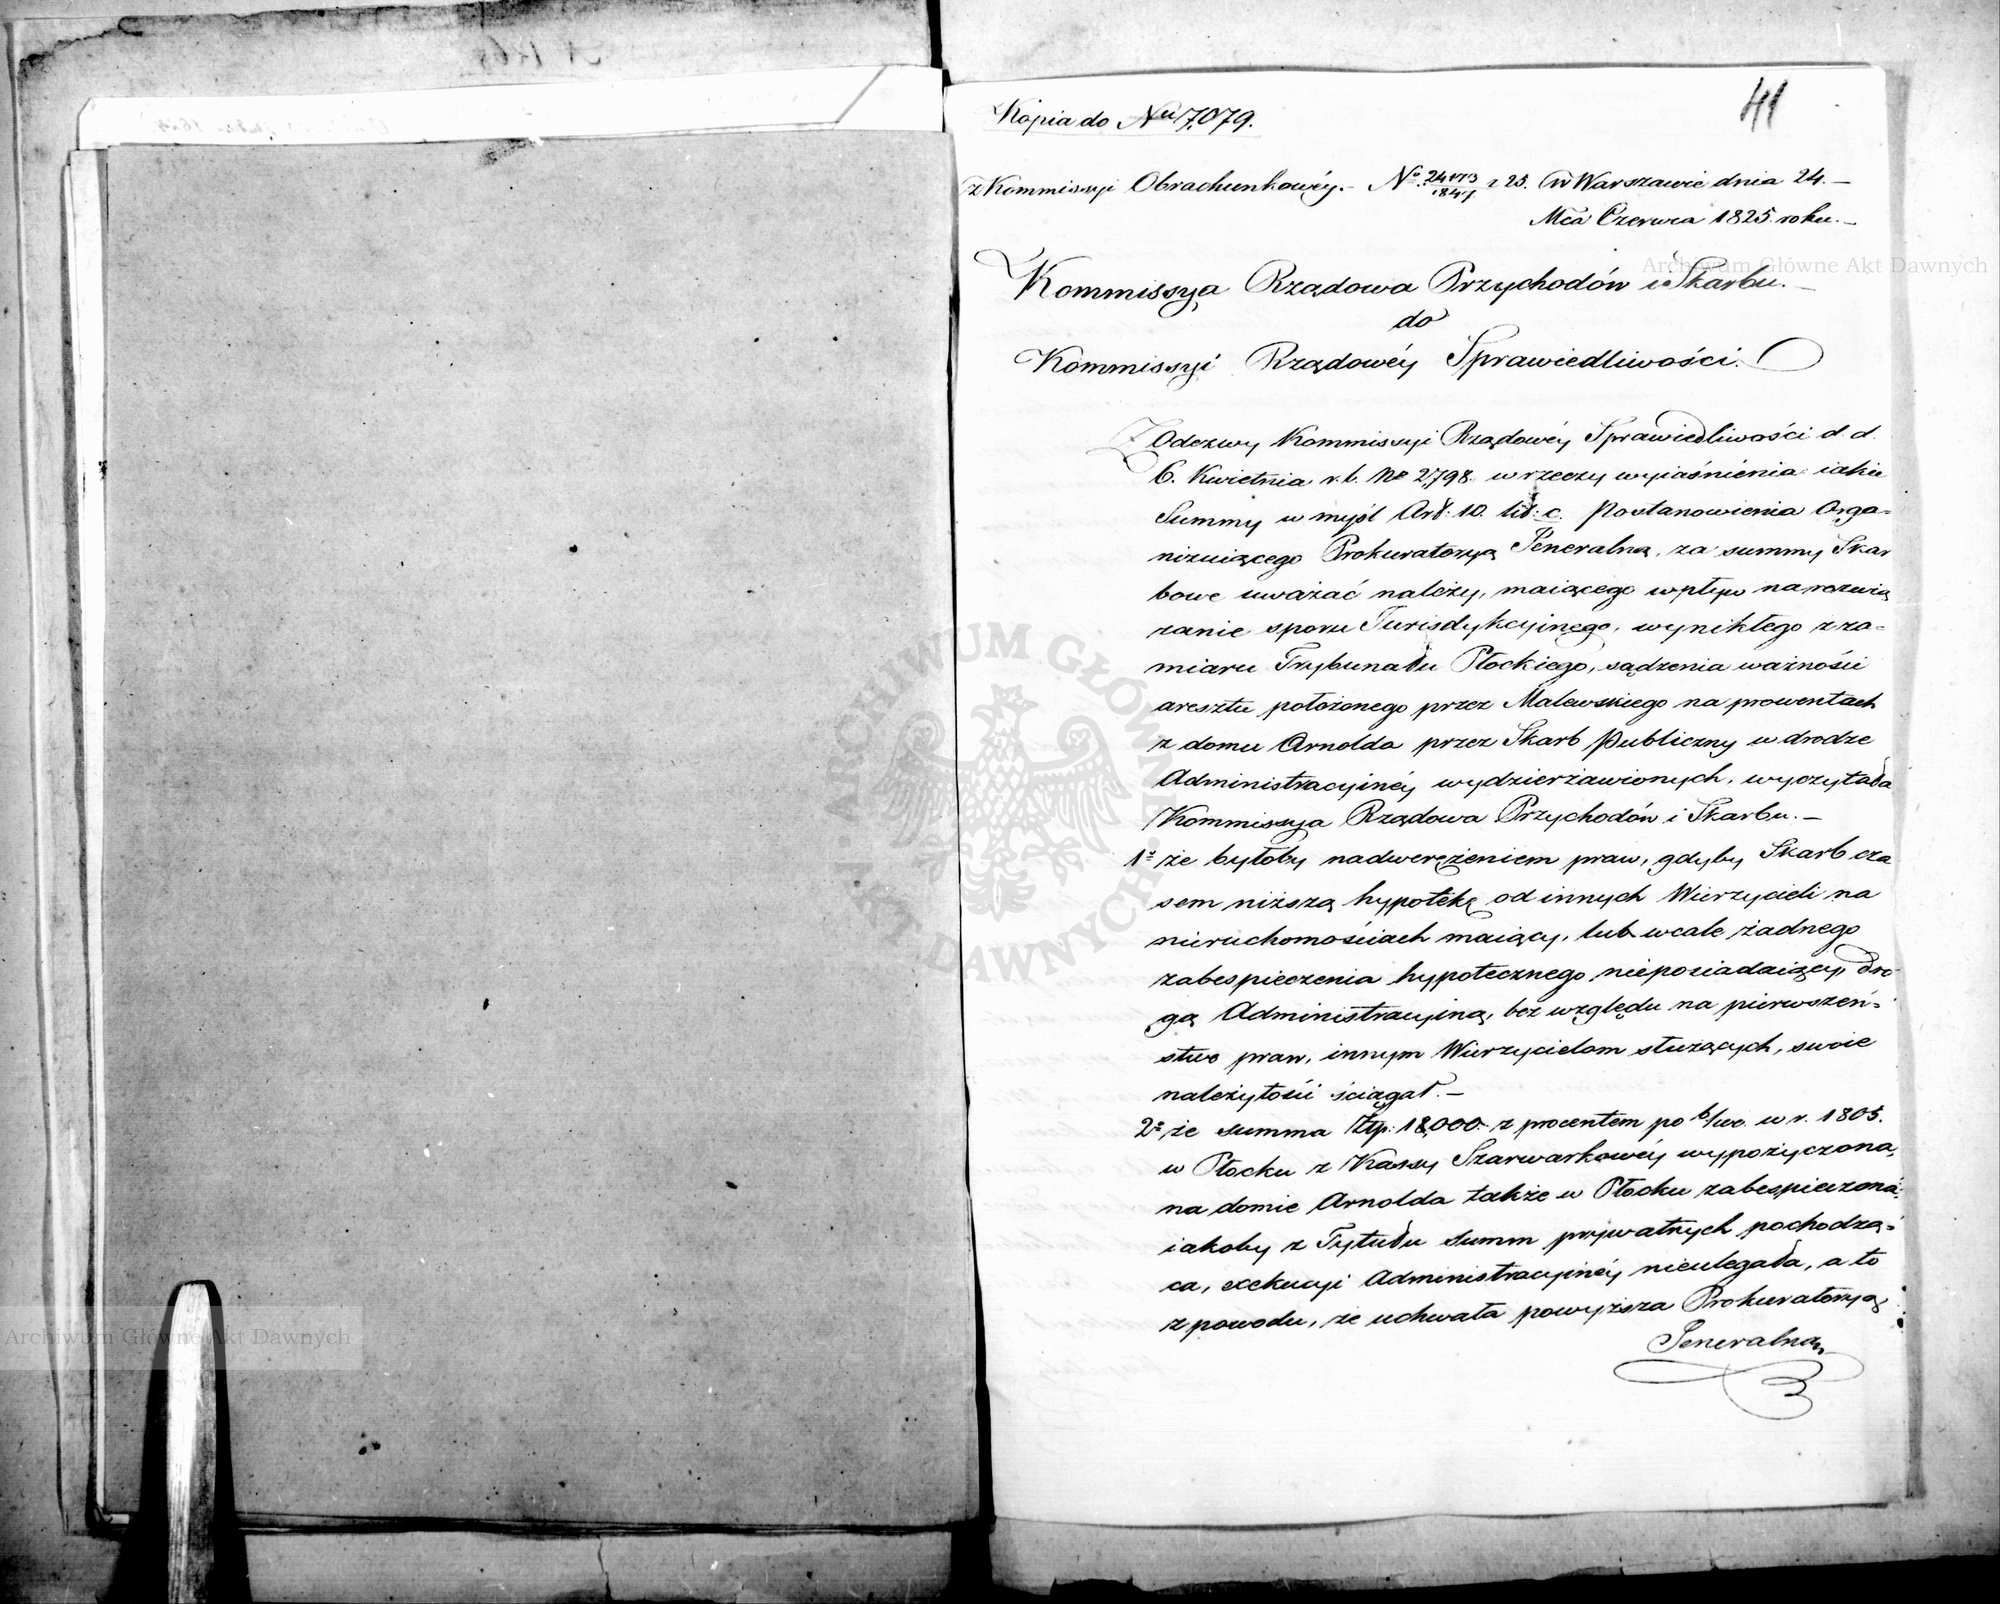 41
Kopia do Nru 7,079.
z Kommissyi Obrachunkowéy.- No. r 25. w Warszawie dnia 24.-
Mca Czerwca 1825. roku.-
Kommissya Rządowa Przychodów i Skarbu.-
do
Kommissyi Rządowéy Sprawiedliwości.
Z Odezwy Kommissyi Rządowéy Sprawiedliwości d. d.
6. Kwietnia r. b. No 2,798. w rzeczy wyiaśnienia iakie
Summy w myśl Art: 10. lit: c. Postanowienia Orga=
nizuiącego Prokuratoryą Jeneralną, za summy Skar
bowe uważać należy, maiącego wpływ na rozwią
zanie sporu Jurisdykcyinego, wynikłego z za=
miaru Trybunału Płockiego, sądzenia ważności
aresztu położonego przez Malewskiego na prowentach
z domu Arnolda przez Skarb publiczny w drodze
Administracyinéy wydzierżawionych, wyczytała
Kommissya Rządowa Przychodów i Skarbu.-
1o że byłoby nadwerężeniem praw, gdyby Skarb cza
sem niższą hypotekę od innych Wierzycieli na
nieruchomościach maiący, lub wcale żadnego
zabespieczenia hypotecznego nieposiadaiący, dro
gą Administracyiną, bez względu na pierwszeń=
stwo praw, innym Wierzycielom służących, swoie
należytości ściągał.-
2o że summa Złp: 18,000. z procentem po w r. 1805.
w Płocku z Kassy Szarwarkowéy wypożyczona,
na domie Arnolda także w Płocku zabespieczona,
iakoby z Tytułu summ prywatnych pochodzą=
ca, exekucyi Administracyinéy nieulegała, a to
z powodu, że uchwała powyższa Prokuratoryą
Jeneralną
Archiwum Główne Akt Dawnych
Archiwum Główne Akt Dawnych
ARCHIWUM GŁÓWNE AKT DAWNYCH